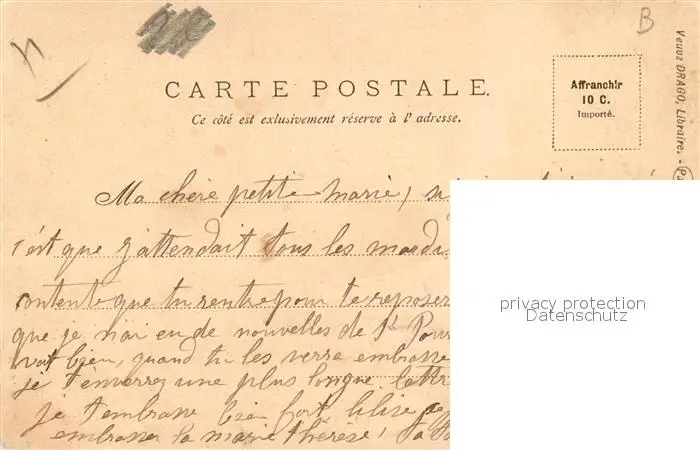 B
CARTE POSTALE.
Ce côté est exlusivement réserve à l'adresse.
Affranchir
10 C.
Importé.
Veuve DRAGO, Libraire. -
Ma chère petite marie, si
c'est que j'attendait tous les mardi
contente que tu rentre pour te reposer
que je n'ai eu de nouvelles de St Pour
vat bien, quand tu les verra embrasse
je t'enverrez une plus longue lettr
je t'embrasse bien fort
embrasser la marie thérèse!
privacy protection
Datenschutz